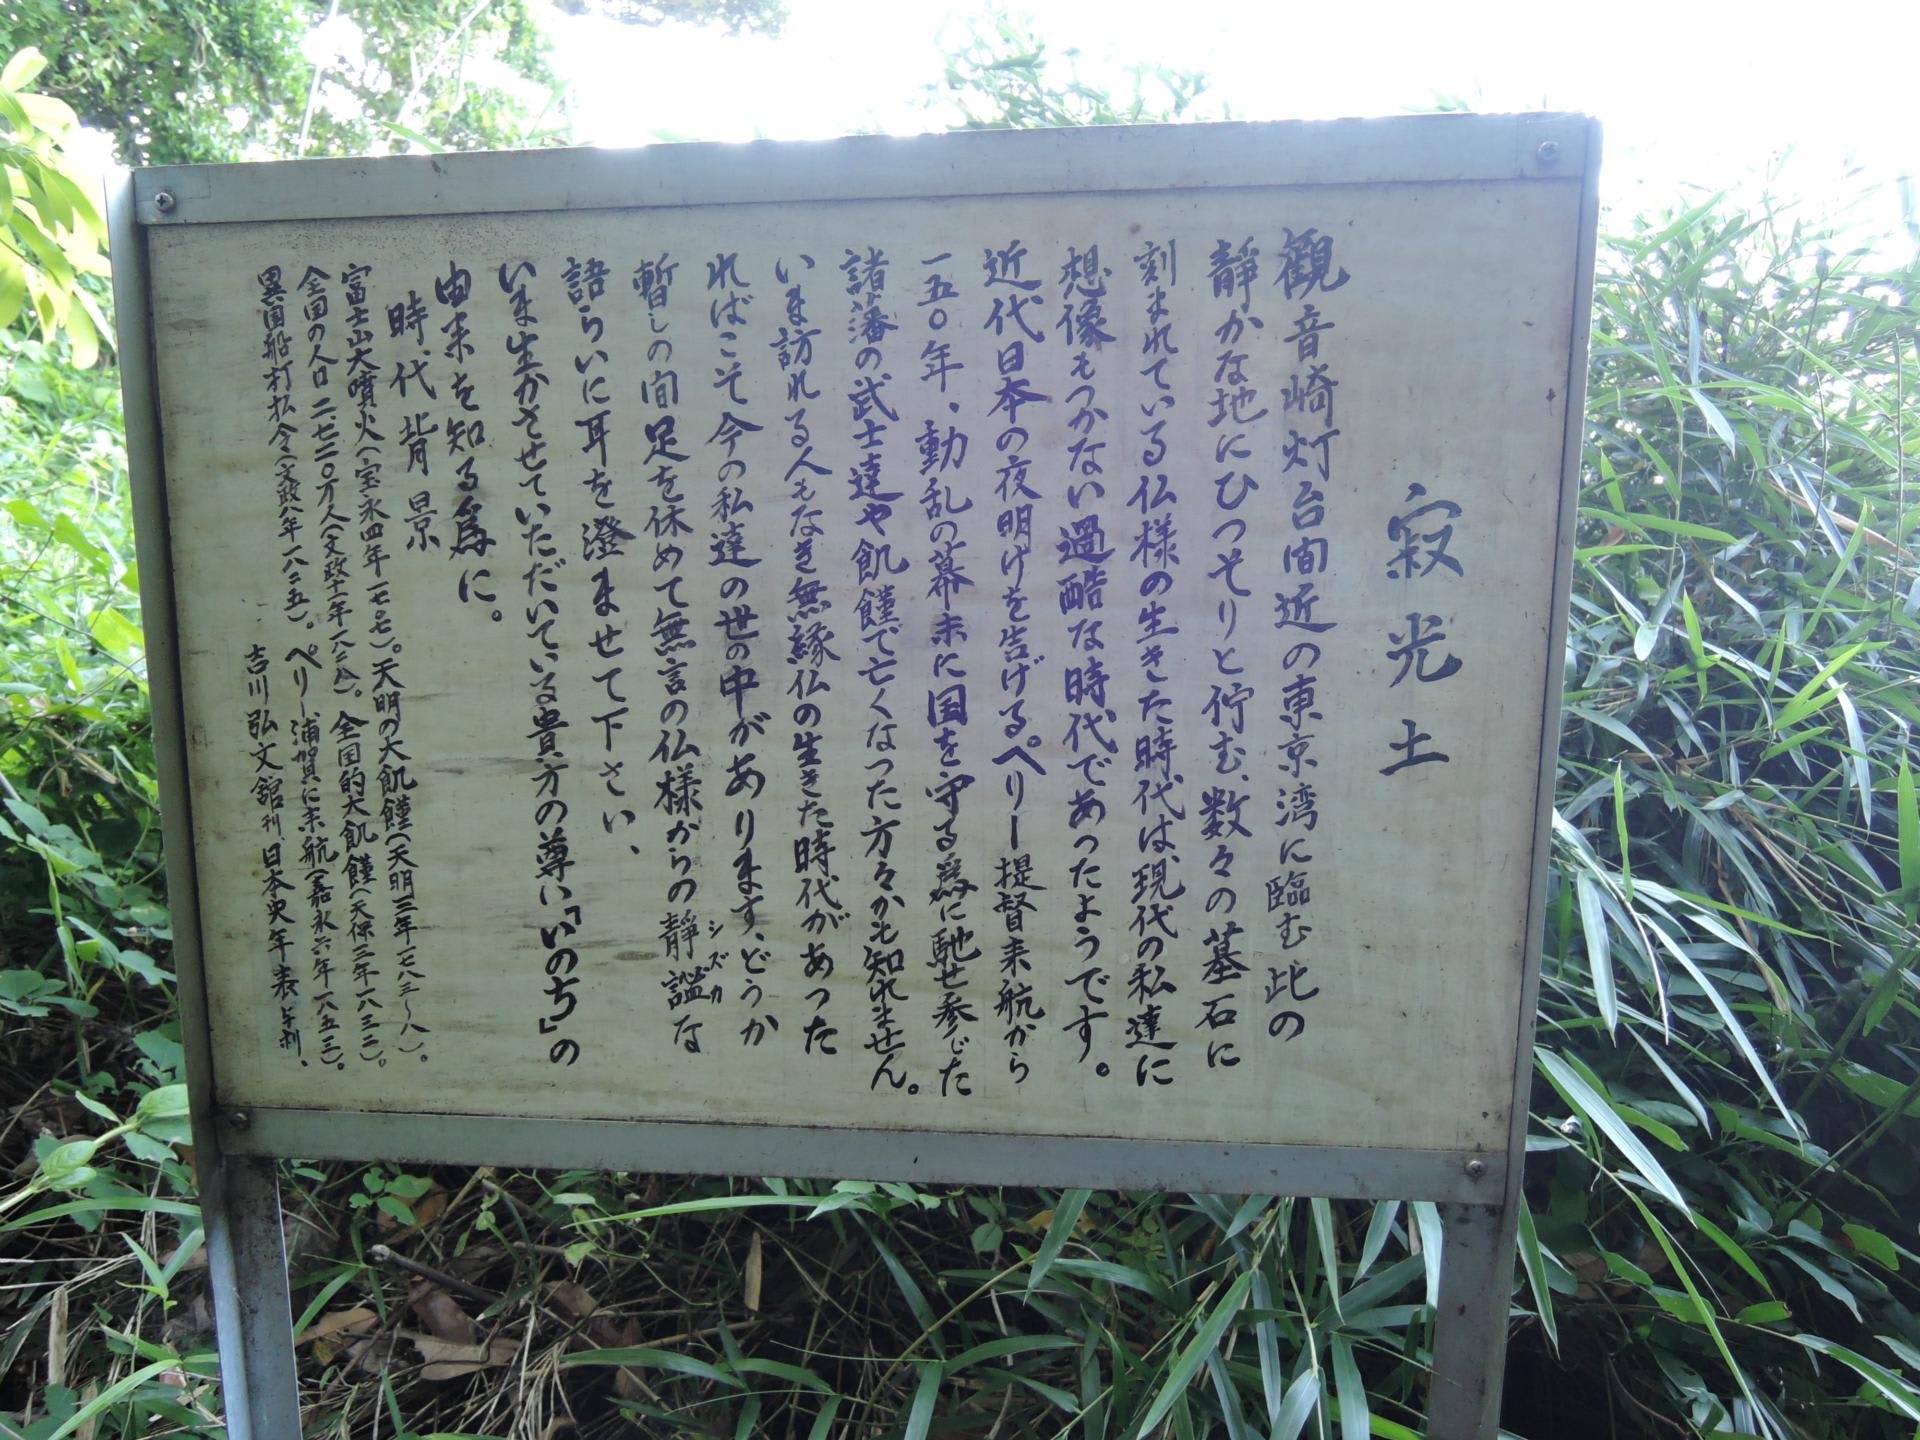 寂光土
観音崎灯台間近の東京湾に臨む此の
静かな地にひっそりと佇む、数々の墓石に
刻まれている仏様の生きた時代は、現代の私達に
想像もつかない過酷な時代であったようです。
近代日本の夜明けを告げるペリー提督来航から
一五〇年、動乱の幕末に国を守る為に馳せ参じた
諸藩の武士達や飢饉で亡くなった方々かも知れません。
いま訪れる人もなき無縁仏の生きた時代があった
ればこそ今の私達の世の中があります、どうか
暫しの間足を休めて無言の仏様からの静謐な
シズカ
語らいに耳を澄ませて下さい、
いま生かさせていただいている貴方の尊い「いのち」の
由来を知る為に。
時代背景
富士山大噴火(宝永四年一七〇七)。天明の大飢饉(天明三年一七八三〜八)。
全国の人口二七二〇万人(文政十一年一八二八)。全国的大飢饉(天保三年一八三二)。
異国船打払令(文政八年一八二五)。ペリー浦賀に来航(嘉永六年一八五三)。
吉川弘文舘刊、日本史年表より